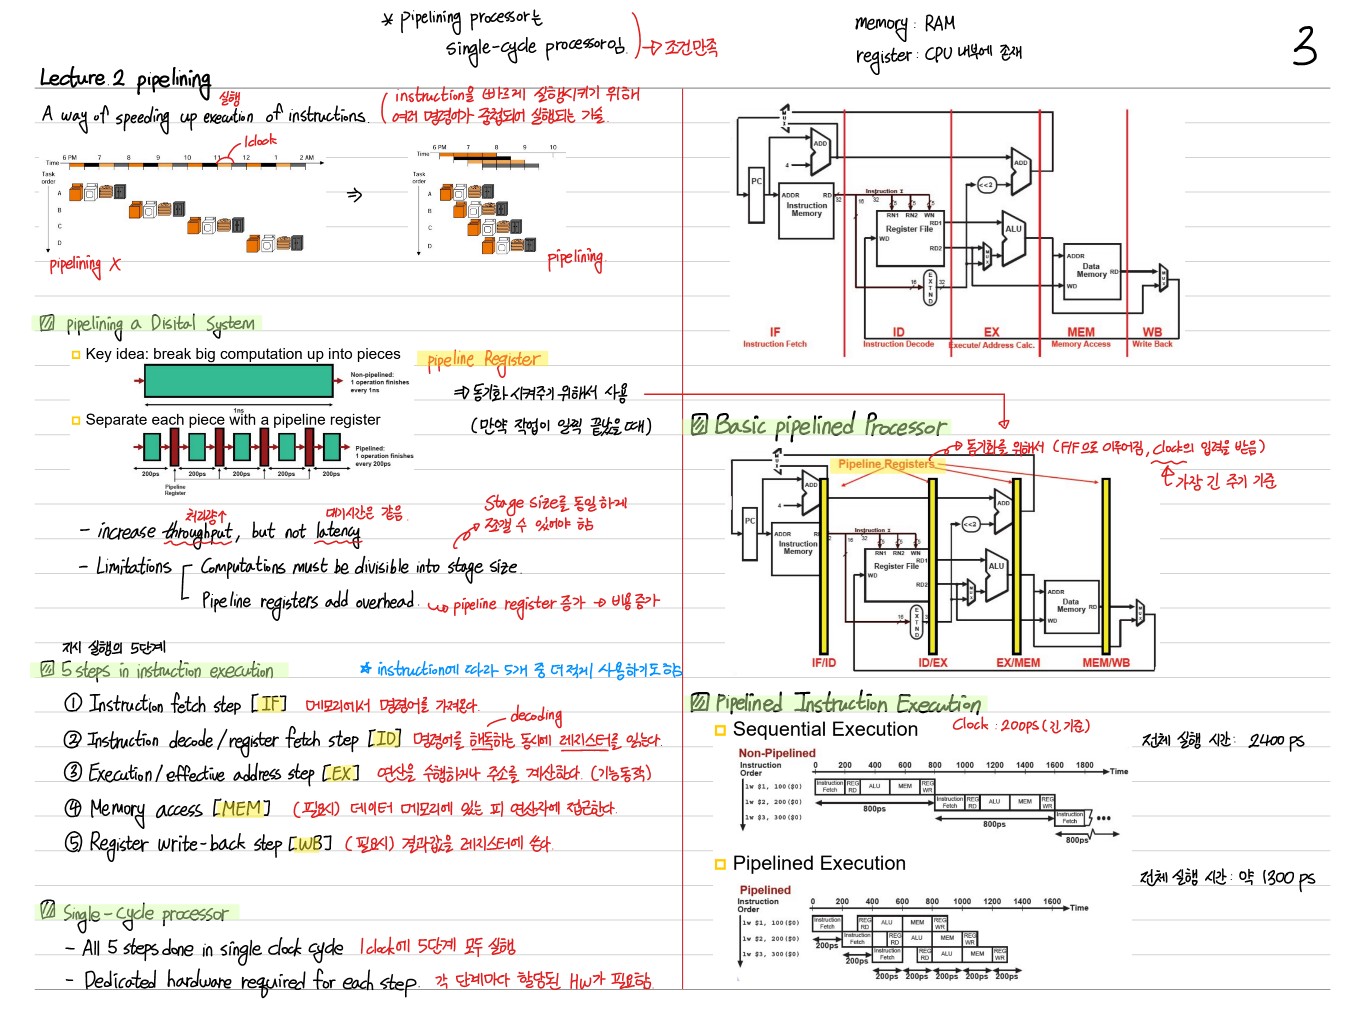 * pipelining processor는
single-cycle processor임.
→ 조건만족
memory : RAM
register : CPU 내부에 존재
3
Lecture.2 pipelining
실행
A way of speeding up execution of instructions.
instruction을 빠르게 실행시키기 위해
여러 명령어가 중첩되어 실행되는 기술.
1clock
Time
6 PM 7 8 9 10 11 12 1 2 AM
Task order
A
B
C
D
pipelining X
⇒
Time
6 PM 7 8 9 10
Task order
A
B
C
D
pipelining.
pipelining a Disital System
Key idea: break big computation up into pieces
Non-pipelined:
1 operation finishes
every 1ns
1ns
Separate each piece with a pipeline register
Pipelined:
1 operation finishes
every 200ps
200ps 200ps 200ps 200ps 200ps
Pipeline
Register
pipeline Register
⇒ 동기화 시켜주기 위해서 사용
(만약 작업이 일찍 끝났을 때)
처리량↑ 대기시간은 같음.
- increase throughput, but not latency
Stage size를 동일하게
쪼갤 수 있어야 함
- Limitations
Computations must be divisible into stage size.
Pipeline registers add overhead. pipeline register 증가 → 비용증가
지시 실행의 5단계
5 steps in instruction execution
* instruction에 따라 5개 중 더 적게 사용하기도 함
① Instruction fetch step [IF] 메모리에서 명령어를 가져온다.
decoding
② Instruction decode/register fetch step [ID] 명령어를 해독하는 동시에 레지스터를 읽는다.
③ Execution/effective address step [EX] 연산을 수행하거나 주소를 계산한다. (기능동작)
④ Memory access [MEM] (필요시) 데이터 메모리에 있는 피 연산자에 접근한다.
⑤ Register write-back step [WB] (필요시) 결과값을 레지스터에 쓴다.
Single-cycle processor
- All 5 steps done in single clock cycle 1clock에 5단계 모두 실행
- Dedicated hardware required for each step. 각 단계마다 할당된 HW가 필요함.
MUX
ADD
4
PC
ADDR
RD
Instruction
Memory
32
16
32
Instruction I
5 5 5
RN1 RN2 WN
RD1
Register File
WD
RD2
16
EXTND
32
<<2
ADD
ALU
MUX
ADDR
Data
Memory
RD
WD
MUX
IF
Instruction Fetch
ID
Instruction Decode
EX
Execute/ Address Calc.
MEM
Memory Access
WB
Write Back
Basic pipelined Processor
→ 동기화를 위해서 (F/F으로 이루어짐, clock의 입력을 받음)
가장 긴 주기 기준
Pipeline Registers
MUX
ADD
4
PC
ADDR
Instruction
Memory
16
32
Instruction I
5 5 5
RN1 RN2 WN
RD1
Register File
WD
RD2
16
EXTND
<<2
ADD
ALU
MUX
ADDR
Data
Memory
RD
WD
MUX
IF/ID
ID/EX
EX/MEM
MEM/WB
Pipelined Instruction Execution
Sequential Execution
Clock : 200ps (긴 기준)
전체 실행 시간: 2400 ps
Non-Pipelined
Instruction
Order
0 200 400 600 800 1000 1200 1400 1600 1800 Time
lw $1, 100($0) Instruction Fetch REG RD ALU MEM REG WR
lw $2, 200($0) 800ps Instruction Fetch REG RD ALU MEM REG WR
lw $3, 300($0) 800ps Instruction Fetch •••
800ps
Pipelined Execution
전체 실행 시간: 약 1300 ps
Pipelined
Instruction
Order
0 200 400 600 800 1000 1200 1400 1600 Time
lw $1, 100($0) Instruction Fetch REG RD ALU MEM REG WR
lw $2, 200($0) 200ps Instruction Fetch REG RD ALU MEM REG WR
lw $3, 300($0) 200ps Instruction Fetch REG RD ALU MEM REG WR
200ps 200ps 200ps 200ps 200ps